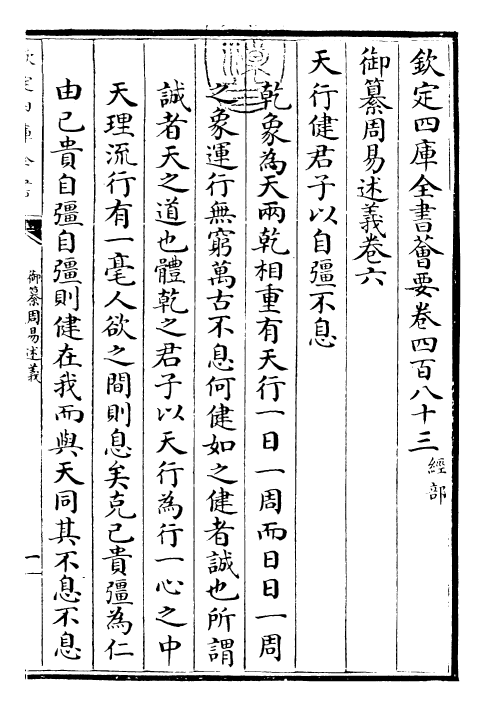 欽定四庫全書薈要卷四百八十三 經部
御纂周易述義卷六
天行健君子以自彊不息
乾象為天兩乾相重有天行一日一周而日日一周
之象運行無窮萬古不息何健如之健者誠也所謂
誠者天之道也體乾之君子以天行為行一心之中
天理流行有一毫人欲之間則息矣克己貴彊為仁
由己貴自彊自彊則健在我而與天同其不息不息
御纂周易述義
一